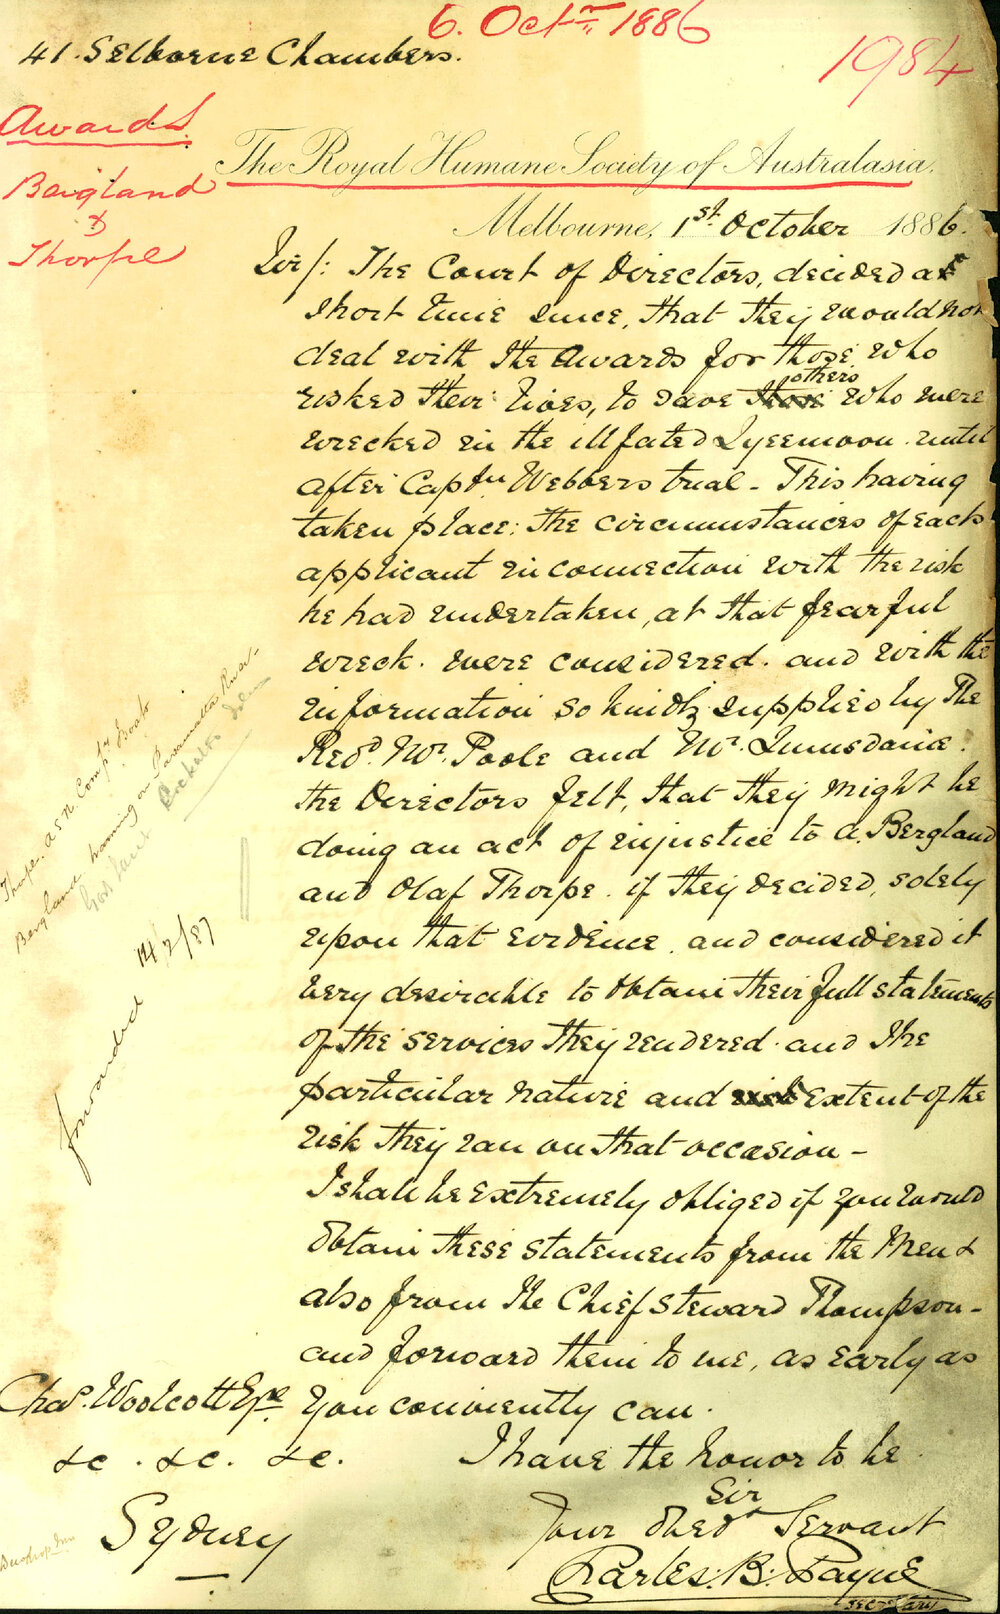 6. Octr. 1886
41. Selborne Chambers.
1984
Awards
Bergland
&
Thorpe
The Royal Humane Society of Australasia.
Melbourne, 1st. October 1886.
Sir/: The Court of Directors, decided a
short time since, that they would not
deal with the Awards for those who
risked their lives, to save those others who were
wrecked in the ill fated Lyeemoon until
after Captn Webbers trial - This having
taken place: the circumstances of each
applicant in connection with the risk
he had undertaken, at that fearful
wreck. were considered. and with the
information so kindly supplied by The
Revd. Mr. Poole and Mr.
the Directors felt, that they might be
doing an act of injustice to A. Bergland
and Olaf Thorpe. if they decided, solely
upon that evidence. and considered it
very desirable to obtain their full statements
of the services they rendered. and the
particular nature and risk extent of the
risk they ran on that occasion -
I shall be extremely obliged if you would
obtain these statements from the Men &
also from the Chief Steward Thompson -
and forward them to me, as early as
you conviently can.
I have the honor to be
Sir
Your Obedt Servant
Charles. B: Payne
Secretary
Chas. Woolcott Esqre
&c. &c. &c.
Sydney
Thorpe. A S N. Compys Boats
Bergland now on Parramatta River -
forwarded 14/2/87